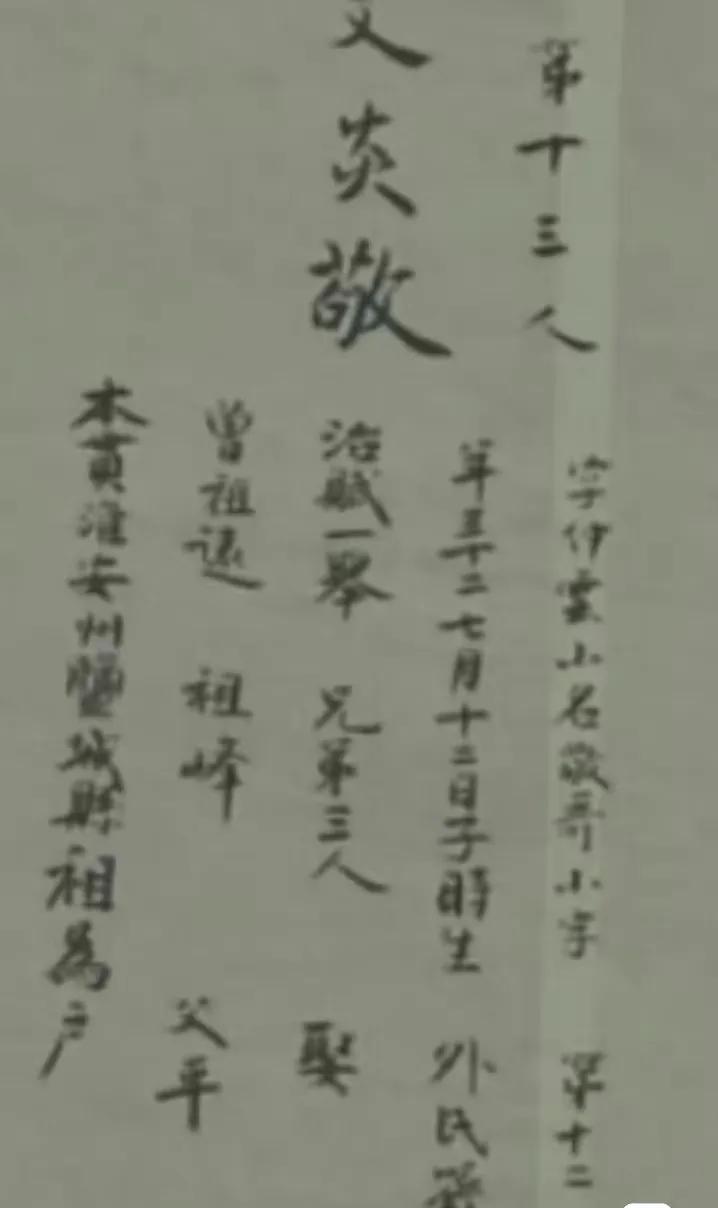 第十三人
炎敬
字伊雲小名敬哥小字 第十二
年三十二七月十二日子時生 外氏
治賦一舉 兄弟三人 娶
曾祖遠 祖峰 父平
本貫淮安州鹽城縣祖為户